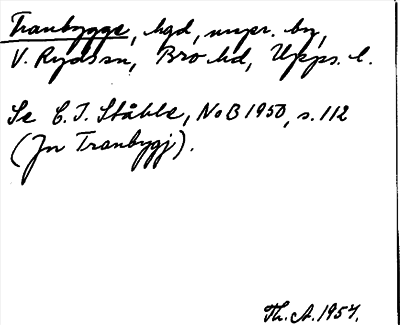 Tranbygge, hgd, urspr. by,
V. Ryds sn, Bro hd, Upps. l.
Se C. I. Ståhle, NoB 1950, s. 112
(Jn Tranbygj).
Th. A. 1957.